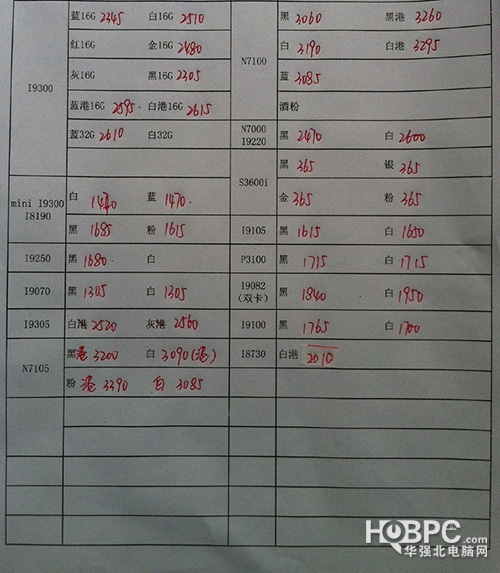 I9300
蓝16G 2345 白16G 2510
红16G 金16G 2480
灰16G 黑16G 2305
蓝港16G 2595 白港16G 2615
蓝32G 2610 白32G
mini I9300
I8190
白 1470 蓝 1470
黑 1685 粉 1615
I9250 黑 1680 白
I9070 黑 1305 白 1305
I9305 白港 2520 灰港 2560
N7105
黑港 3200 白 3090(港)
粉 港 3390 白 3085
N7100
黑 3060 黑港 3260
白 3190 白港 3295
蓝 3085
酒粉
N7000
I9220
黑 2470 白 2600
S3600i
黑 365 银 365
金 365 粉 365
I9105 黑 1615 白 1650
P3100 黑 1715 白 1715
I9082
(双卡)
黑 1840 白 1950
I9100 黑 1765 白 1700
I8730 白港 2010
HQBPC.com
华强北电脑网